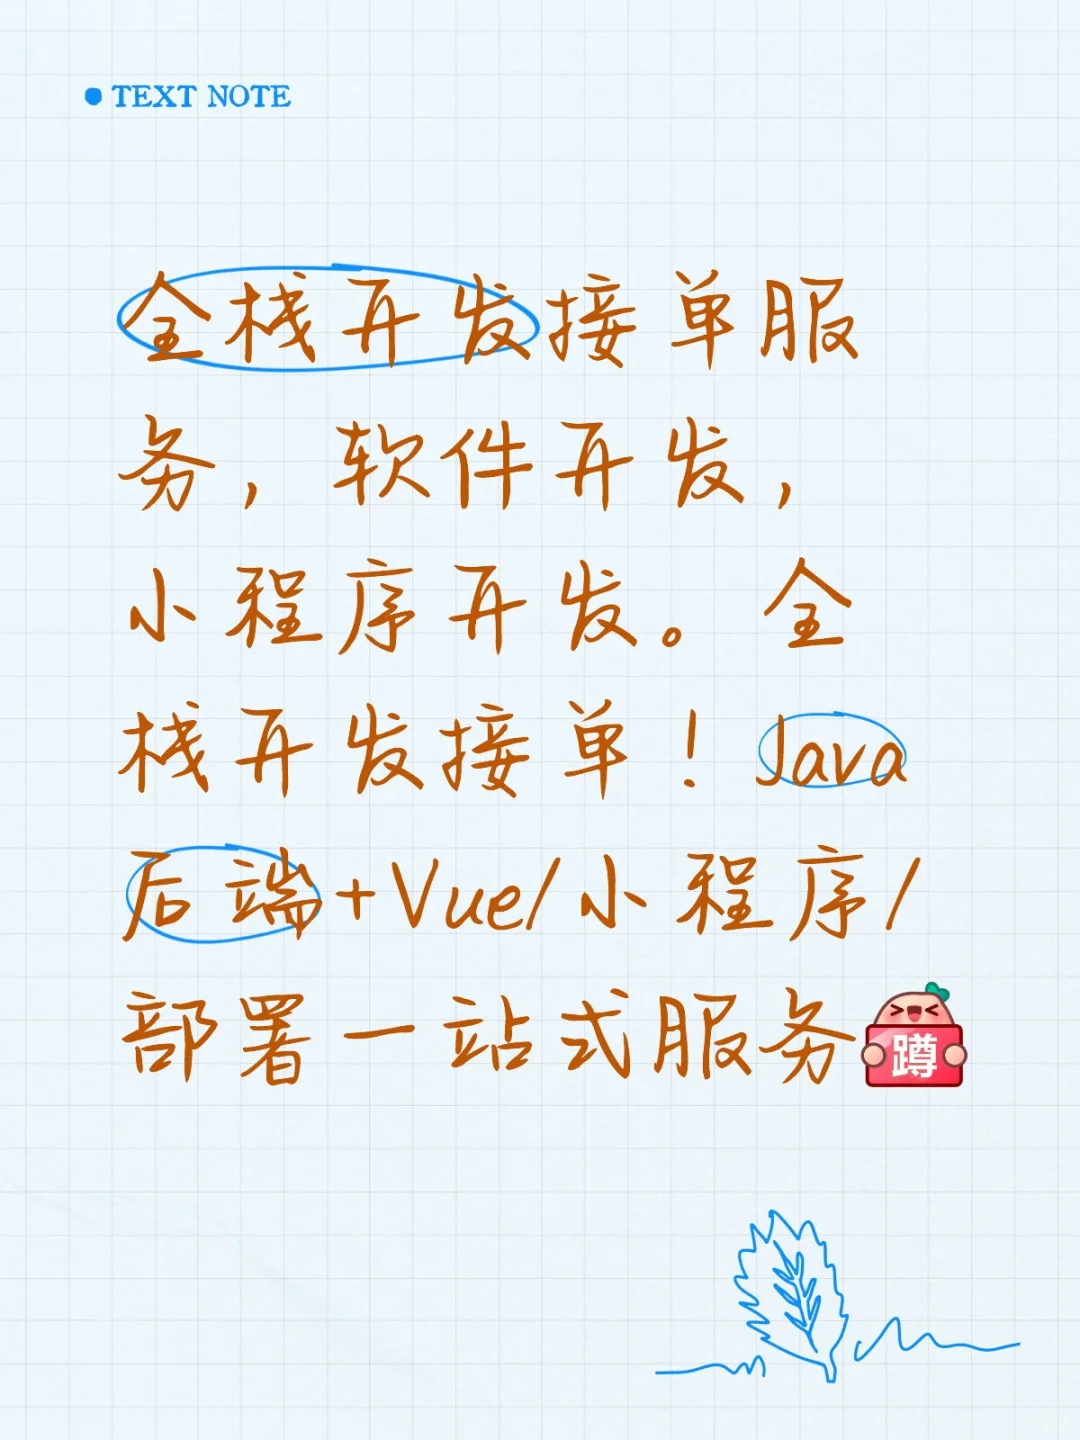 TEXT NOTE
全栈开发接单服
务，软件开发，
小程序开发。全
栈开发接单！Java
后端+Vue/小程序/
部署一站式服务
蹲